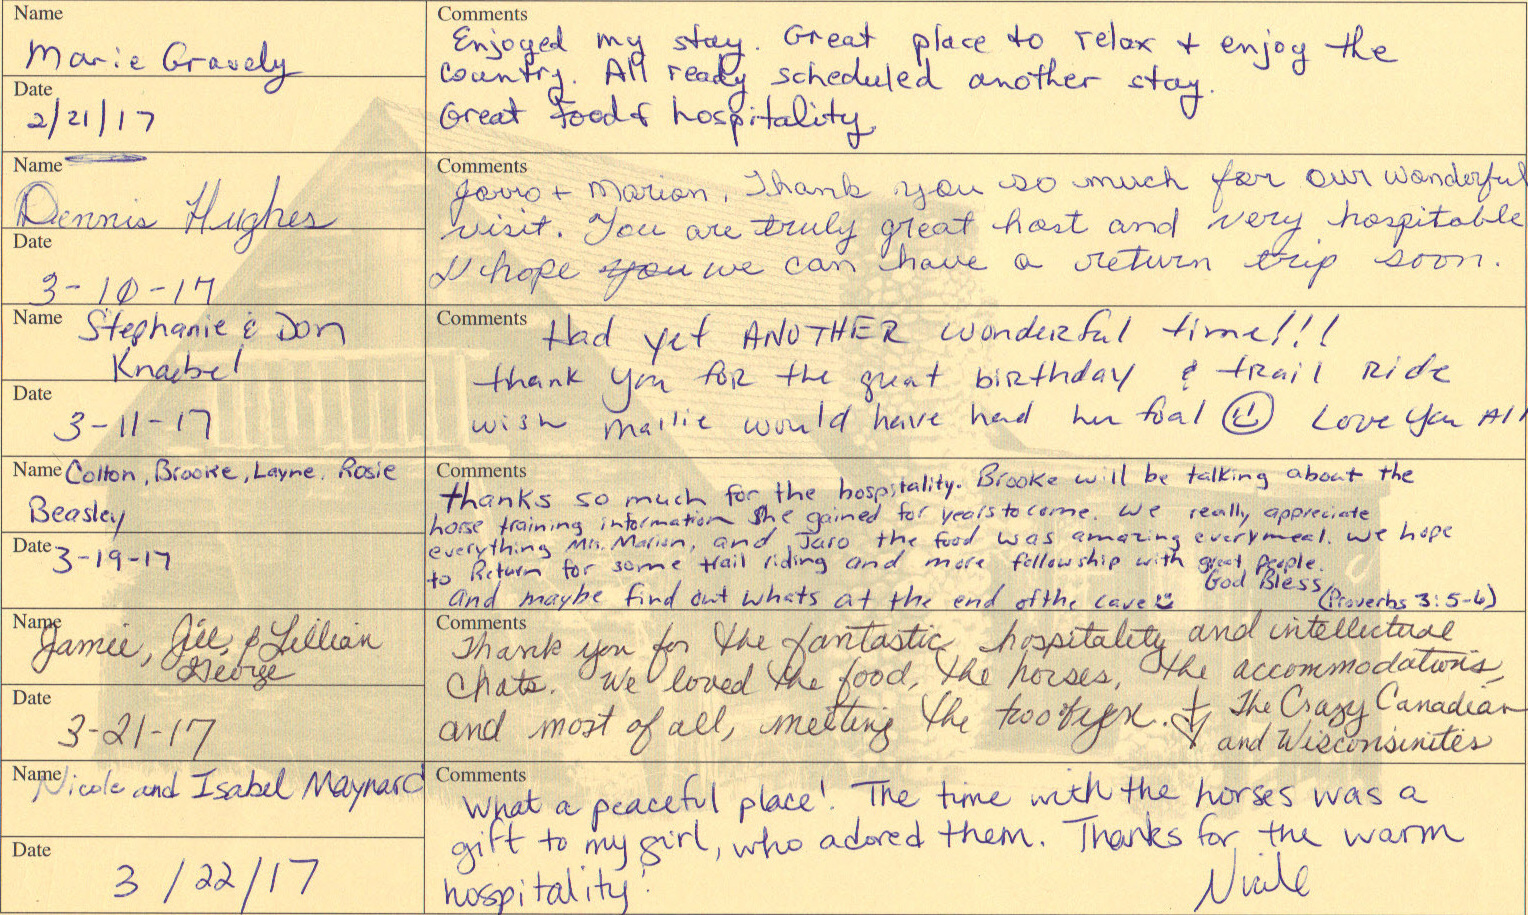 Name
Marie Gravely
Date
2/21/17
Comments
Enjoyed my stay. Great place to relax + enjoy the
country. All ready scheduled another stay.
Great food & hospitality.
Name
Dennis Hughes
Date
3-10-17
Comments
Jarro + Marion, Thank you so much for our wonderful
visit. You are truly great host and very hospitable
I hope you we can have a return trip soon.
Name
Stephanie & Don
Knaebel
Date
3-11-17
Comments
Had yet ANOTHER wonderful time!!!
thank you for the great birthday & trail ride
wish mallie would have had her foal ☺ Love You All
Name
Colton, Brooke, Layne, Rosie
Beasley
Date
3-19-17
Comments
thanks so much for the hospitality. Brooke will be talking about the
horse training information she gained for years to come. We really appreciate
everything Mrs. Marion, and Jaro the food was amazing every meal. we hope
to Return for some trail riding and more fellowship with great people.
God Bless
and maybe find out whats at the end of the cave ☺ (Proverbs 3:5-6)
Name
Jamie, Jill, & Lillian
George
Date
3-21-17
Comments
Thank you for the fantastic hospitality and intellectual
chats. We loved the food, the horses, the accommodations,
and most of all, meeting the The Crazy Canadian
and Wisconsinites
Name
Nicole and Isabel Maynard
Date
3/22/17
Comments
What a peaceful place! The time with the horses was a
gift to my girl, who adored them. Thanks for the warm
hospitality!
Nicole